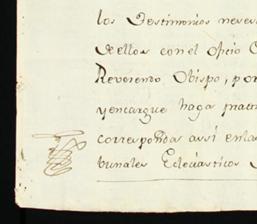 los Testimonios neces
de ellos con el oficio
Reverendo Obispo, por
y encargue haga pract
corresponda assi en la
bunales Eclecıasticos